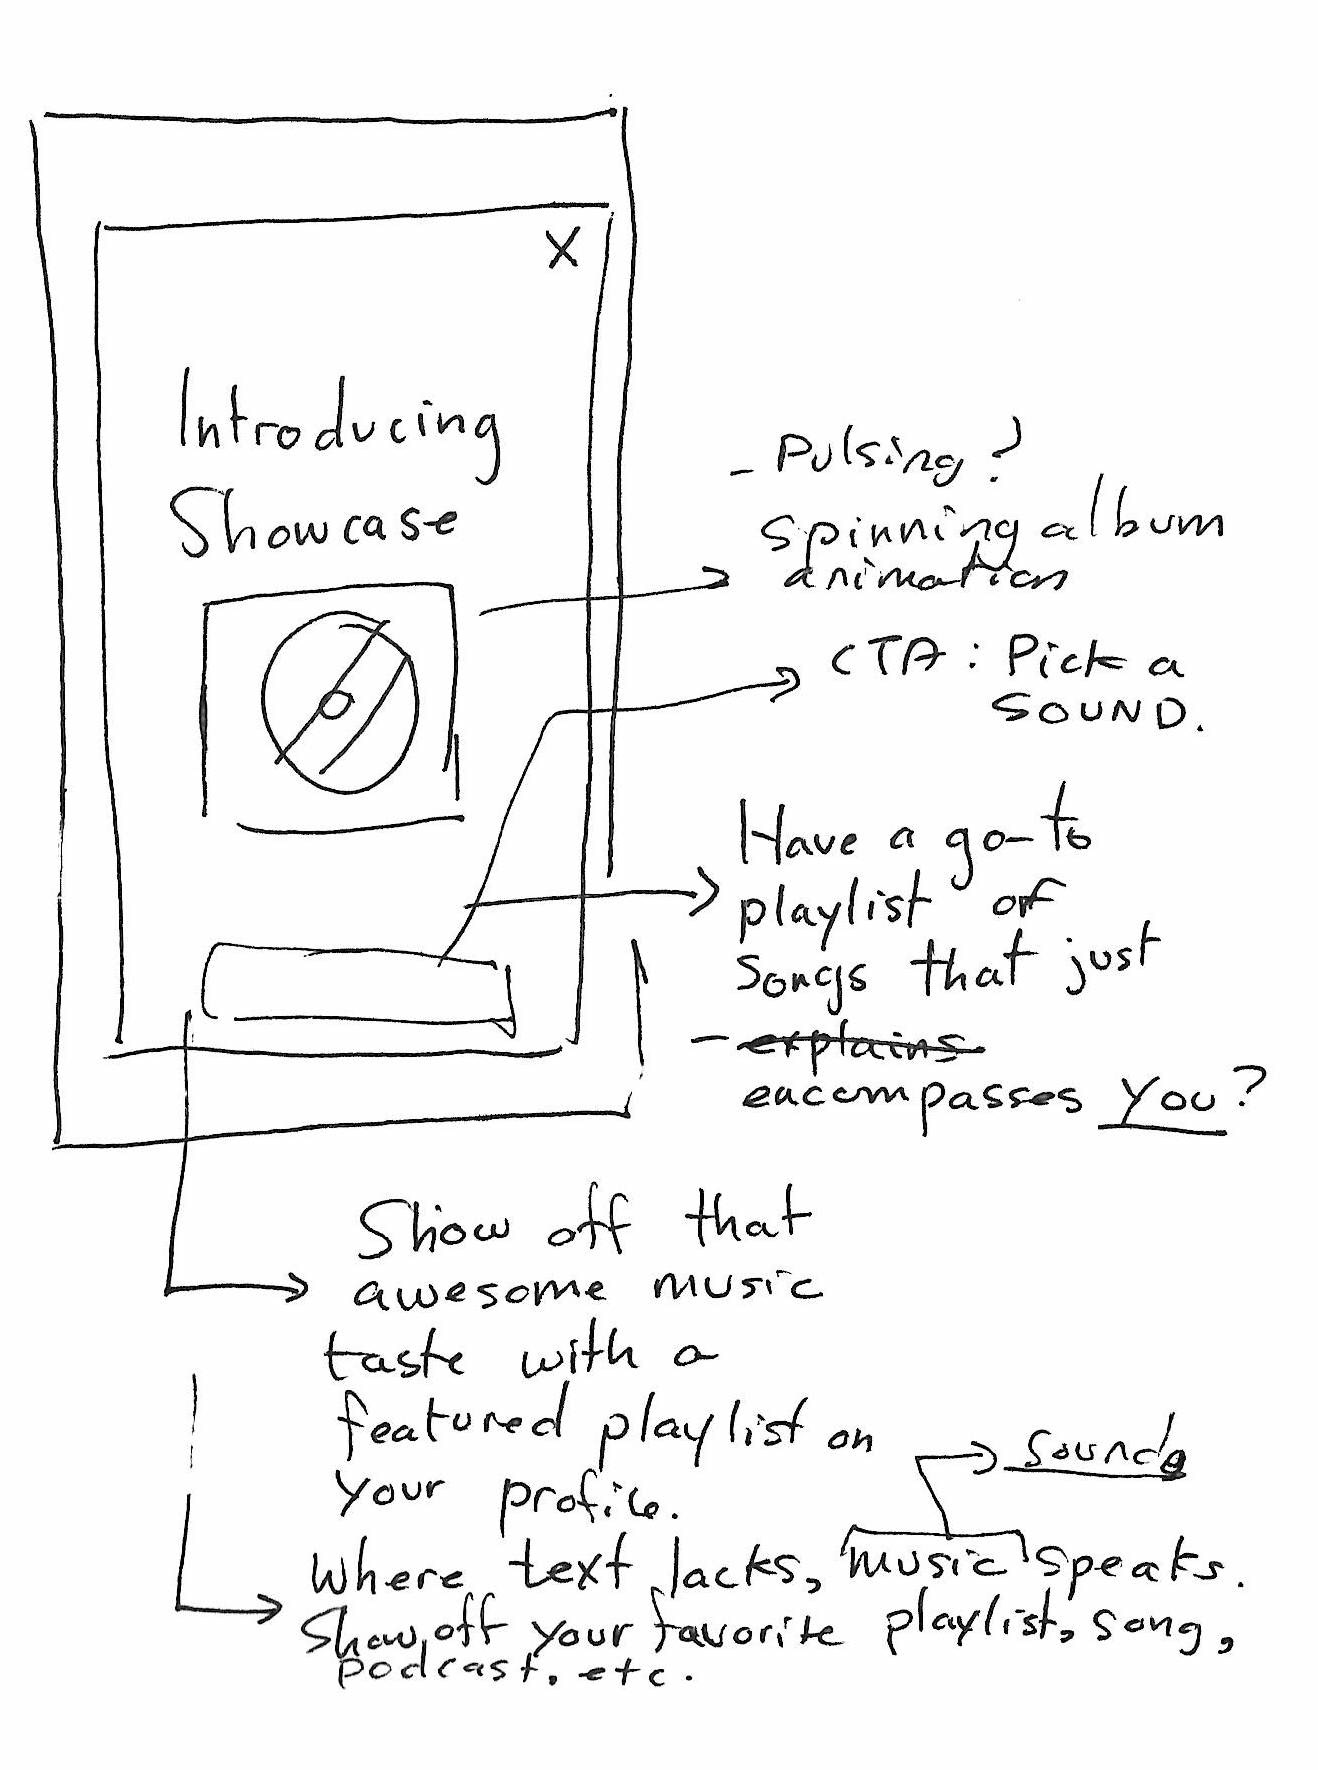 X
Introducing
Showcase
- Pulsing?
Spinning album
animation
CTA: Pick a
SOUND.
Have a go-to
playlist of
songs that just
- explains
encompasses you?
Show off that
awesome music
taste with a
featured playlist on
your profile.
sounds
Where text lacks, music speaks.
Show off your favorite playlist, song,
podcast, etc.